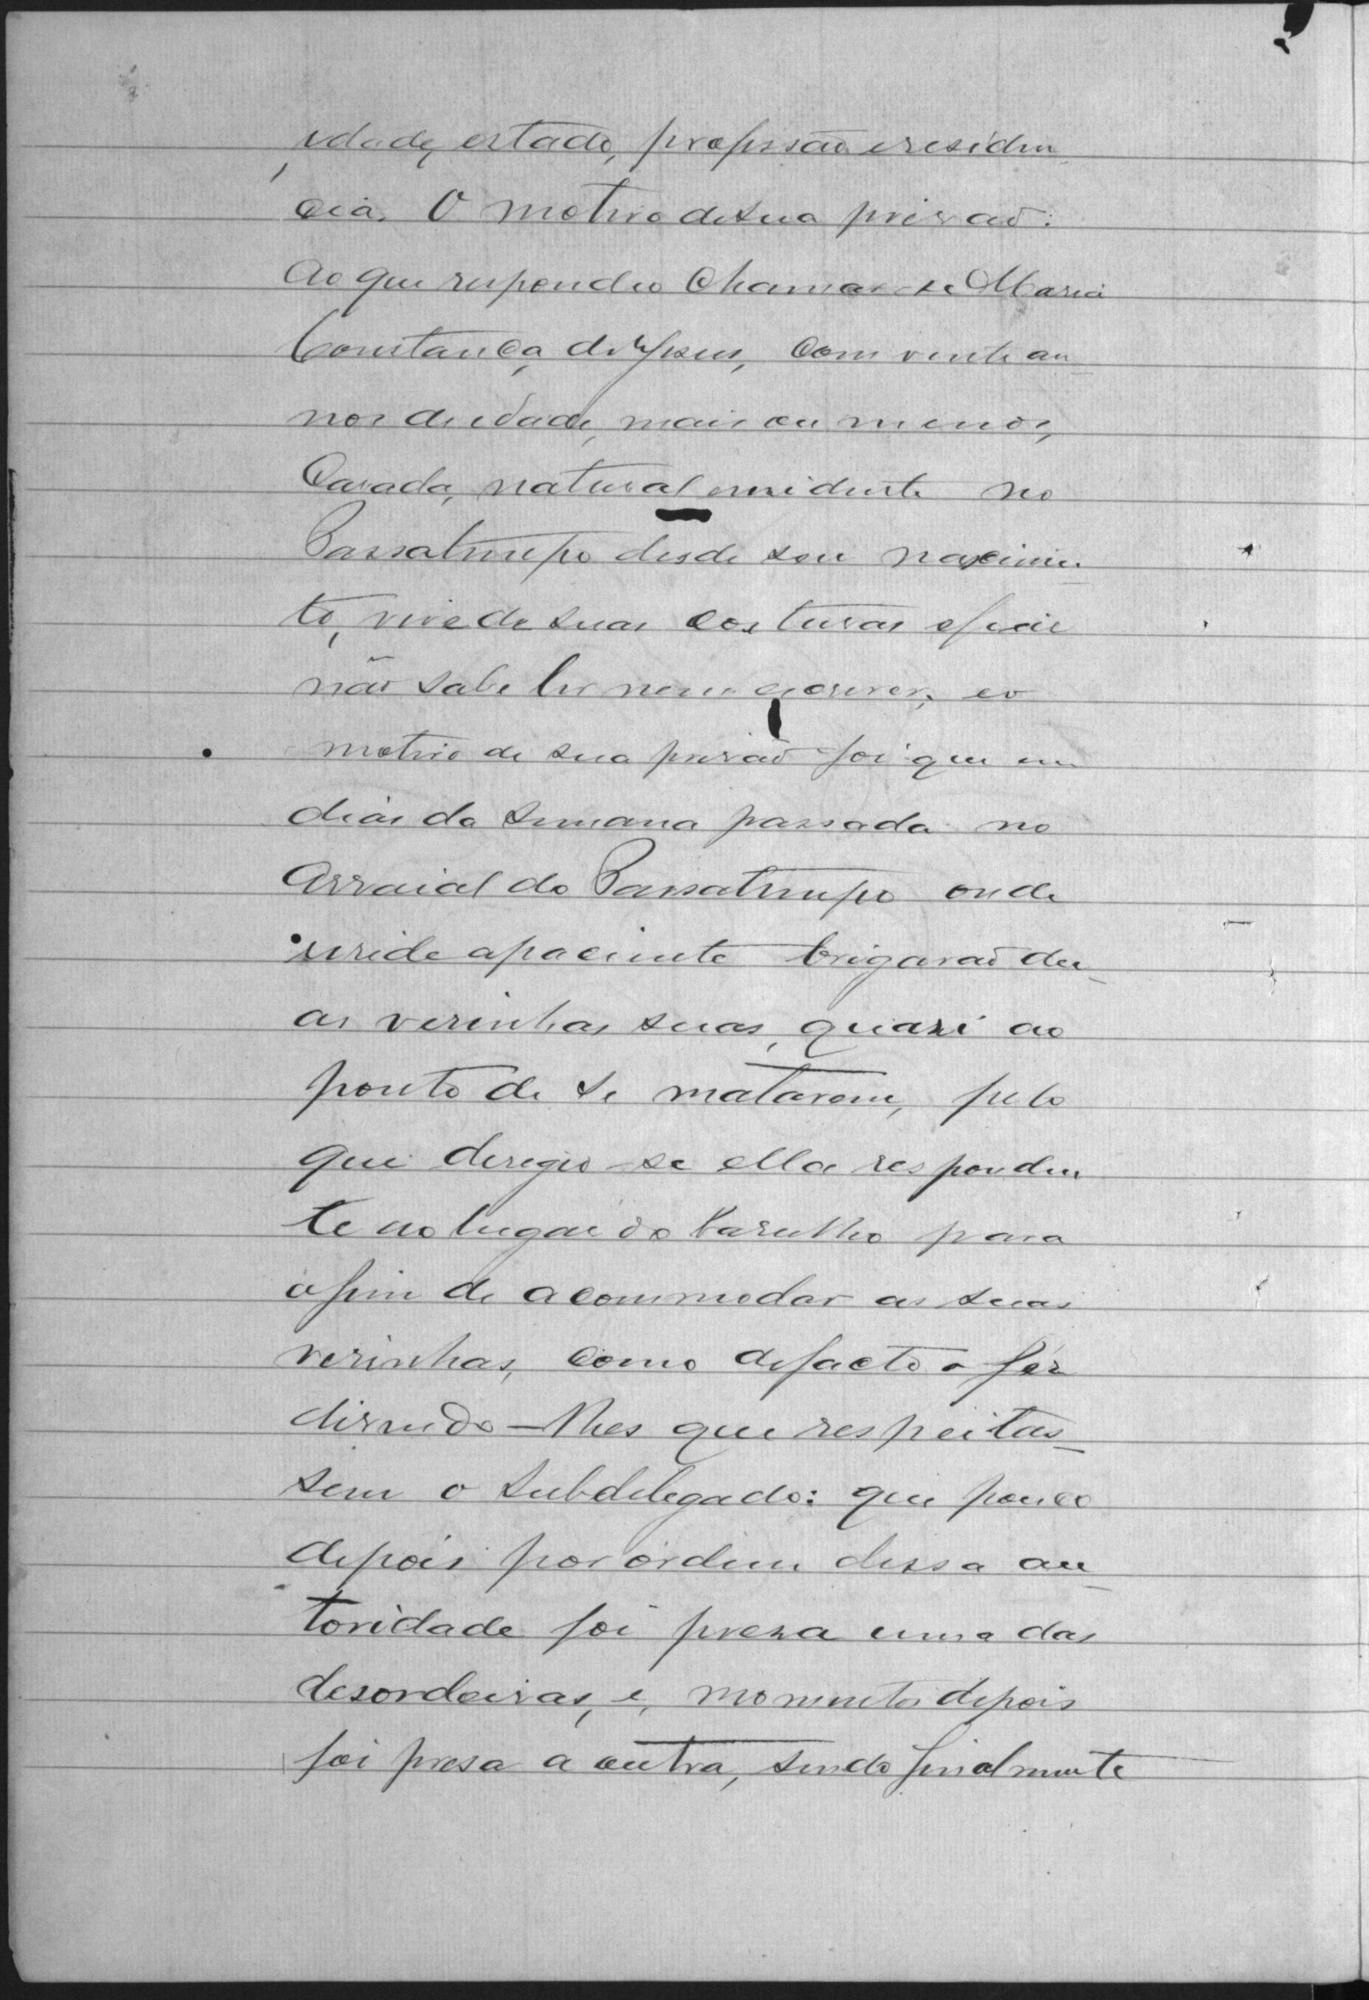 idade, estado, profissão e residen
cia. O motivo de sua prisão:
Ao que respondeo chamar-se Maria
Constança de Jesus, com vinte an-
nos de idade, mais ou menos,
Casada, natural e residente no
Passatempo desde seu nascimen-
to, vive de suas costuras e fiar
não sabe ler nem escrever, e o
motivo de sua prisão foi que em
dias da semana passada no
Arraial do Passatempo onde
reside a paciente brigarão du-
as vesinhas suas, quasi ao
ponto de se matarem, pelo
que deregio-se ella responden
te ao lugar do barulho para
o fim de acommodar as suas
vesinhas, como defacto o fez
disendo-lhes que respeitas-
sem o subdelegado: que pouco
depois por ordem dessa au-
toridade foi preza uma das
desordeiras, e, momentos depois
foi presa a outra, sendo finalmente